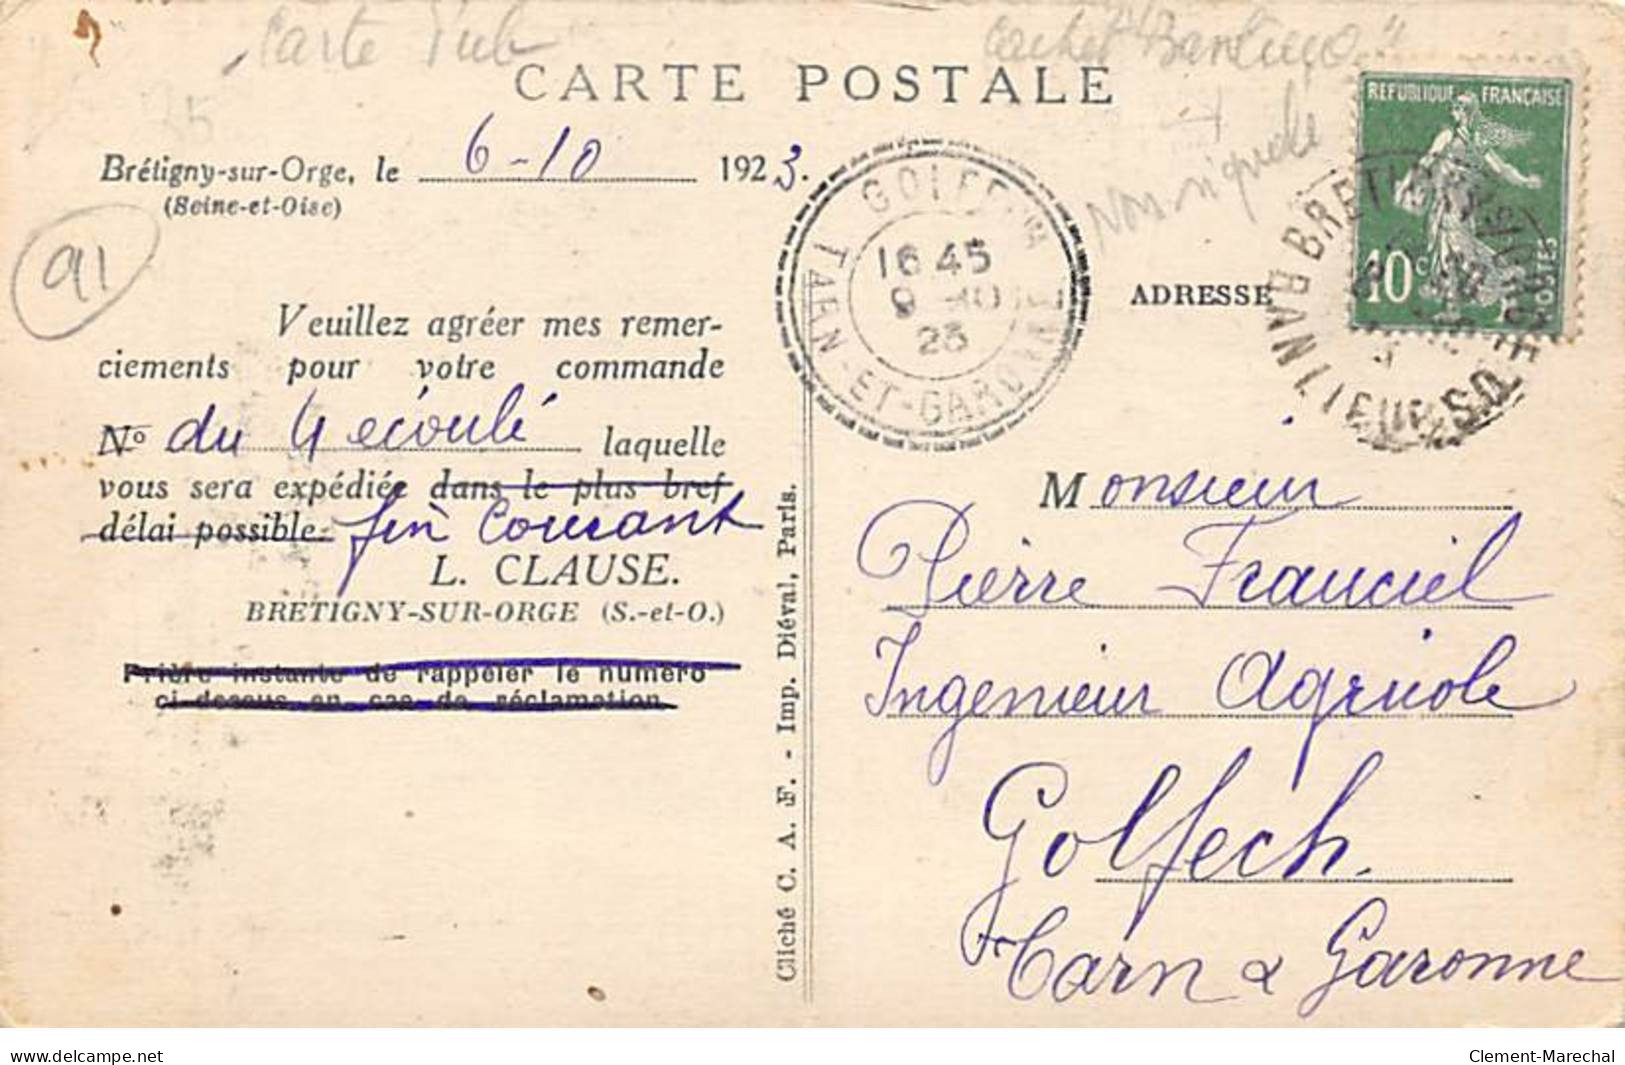 Carte Pub
Cachet "Banlieue"
Non signalé
CARTE POSTALE
Brétigny-sur-Orge, le 6-10 1923.
(Seine-et-Oise)
91
Veuillez agréer mes remer-
ciements pour votre commande
No du 4 écoulé laquelle
vous sera expédiée dans le plus bref
délai possible. fin Courant
L. CLAUSE.
BRETIGNY-SUR-ORGE (S.-et-O.)
Prière instante de rappeler le numéro
ci-dessus en cas de réclamation
Cliché C. A. F. - Imp. Diéval, Paris.
GOLFECH
16 45
9 -10
23
TARN-ET-GARONNE
REPUBLIQUE FRANÇAISE
10c
POSTES
BRETIGNY-S-ORGE
BANLIEUE
ADRESSE
Monsieur
Pierre Franciel
Ingenieur Agricole
Golfech.
Tarn & Garonne
www.delcampe.net
Clement-Marechal